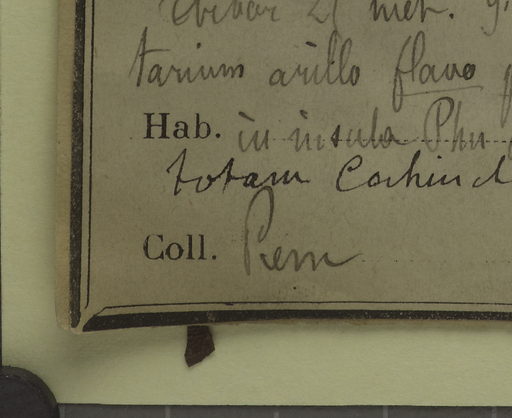 arbor 21 met.
tarium arillo flavo
Hab. in insula Phu
totam Cochinch
Coll. Pierre